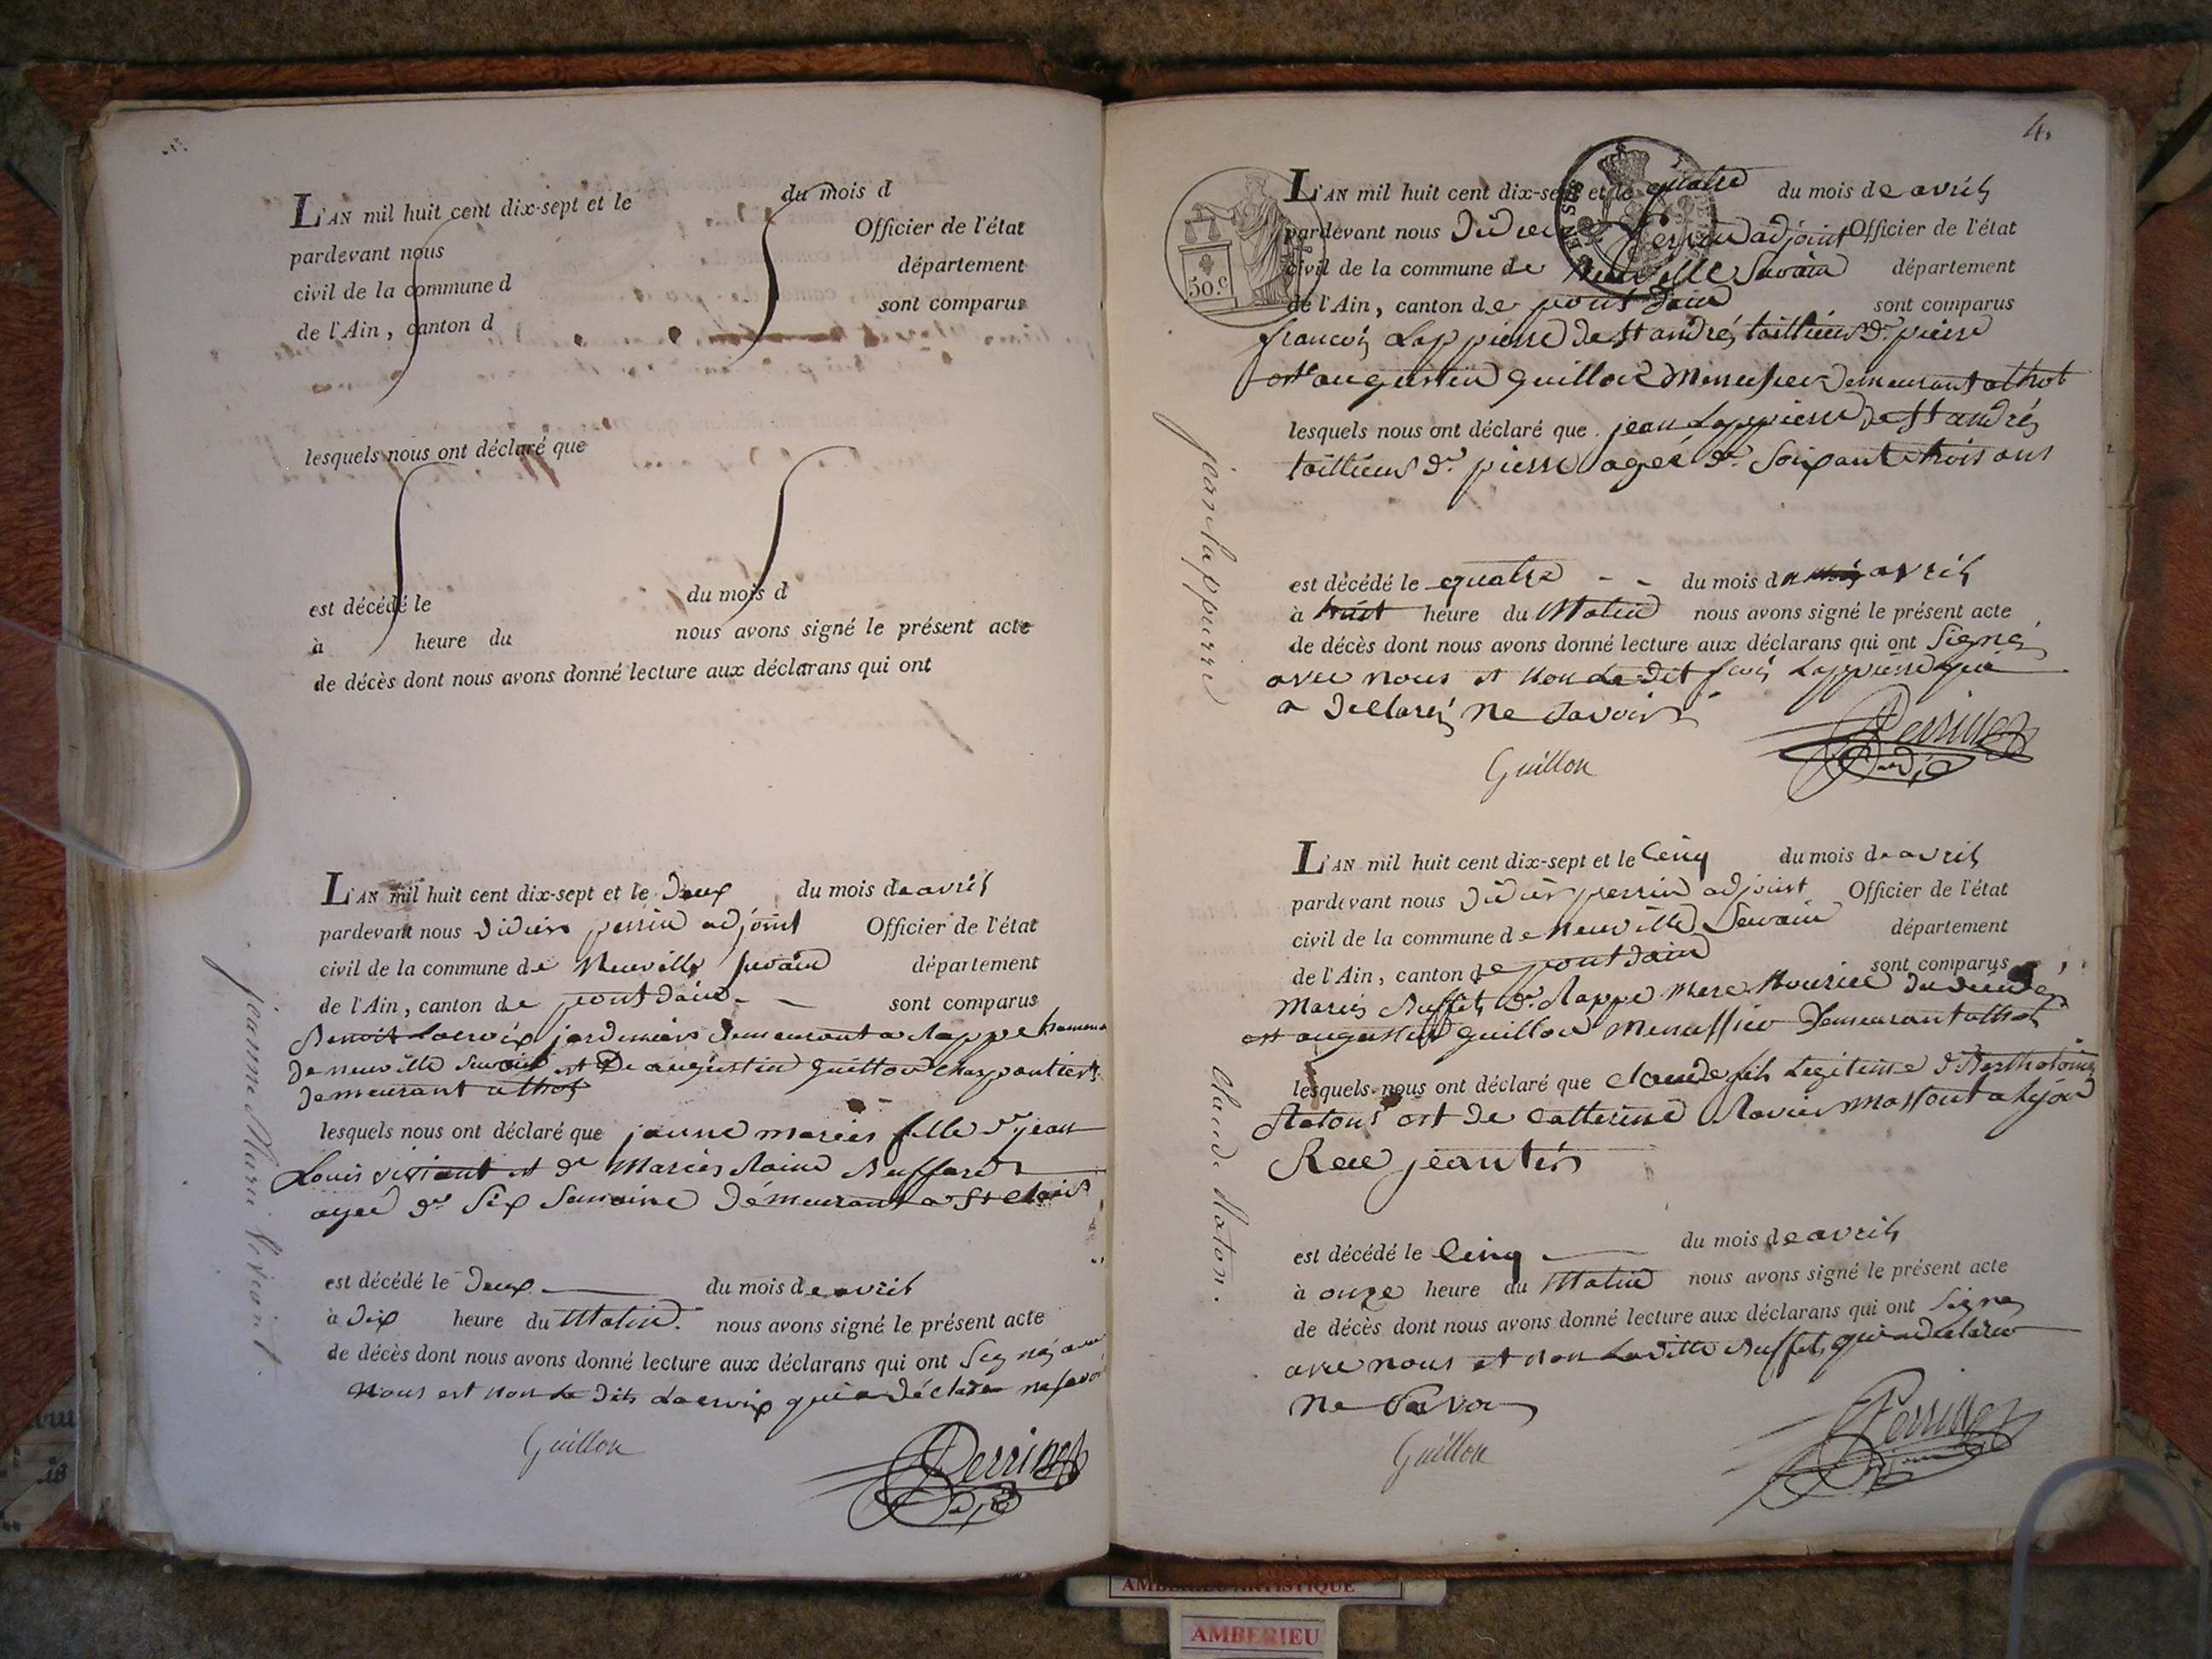 L'AN mil huit cent dix-sept et le du mois d
pardevant nous Officier de l'état
civil de la commune d département
de l'Ain, canton d sont comparus
lesquels nous ont déclaré que
est décédé le du mois d
à heure du nous avons signé le présent acte
de décès dont nous avons donné lecture aux déclarans qui ont
jeanne Marie Viviant.
L'AN mil huit cent dix-sept et le deux du mois de avril
pardevant nous didier perrin adjoint Officier de l'état
civil de la commune de Neuville surain département
de l'Ain, canton de pont dain sont comparus
Benoit Lacroix jardiniers demeurant a Rappe hammau
de neuville surain et De augustin guillon charpantiers
demeurant a thol
lesquels nous ont déclaré que jeanne mariés fille de jean
Louis viviant et de Mariés Buffard
agée de Six Semaine démeurant a St
est décédé le deux du mois de avril
à dix heure du Matin. nous avons signé le présent acte
de décès dont nous avons donné lecture aux déclarans qui ont Signé avec
nous est non Le dits Lacroix qui a déclaré ne savoir
Guillon Perrin adj
4.
50.c
L'AN mil huit cent dix-sept et le quatre du mois de avril
pardevant nous Didier Perrin adjoint Officier de l'état
civil de la commune de Neuville Surain département
de l'Ain, canton de pont dain sont comparus
francois Lappierre de St andré taillieur de pierre
est augustin guillon Menusier demeurant a thol
lesquels nous ont déclaré que jean Lappierre de St andré
taillieur de pierre agée de Soixante trois ans
jean lappierre
est décédé le quatre du mois de avril
à huit heure du Matin nous avons signé le présent acte
de décès dont nous avons donné lecture aux déclarans qui ont Signé
avec nous et non Le dit Lappierre qui
a declaré ne Savoir
Guillon Perrin adj
L'AN mil huit cent dix-sept et le Cinq du mois de avril
pardevant nous Didier perrin adjoint Officier de l'état
civil de la commune de Neuville Surain département
de l'Ain, canton de pont dain sont comparus
Mariés Buffet de Rappe Mere Nourice
est augustin guillon Menussier Demeurant a thol
lesquels nous ont déclaré que claude fils Legitime d Bertholomé
est de Catterine a Lyon
Rue
Claude
est décédé le Cinq du mois de avril
à onze heure du Matin nous avons signé le présent acte
de décès dont nous avons donné lecture aux déclarans qui ont Signé
avec nous et non Laditte Buffet qui a declaré
ne Savoir
Guillon Perrin
AMBERIEU ARTISTIQUE
AMBERIEU